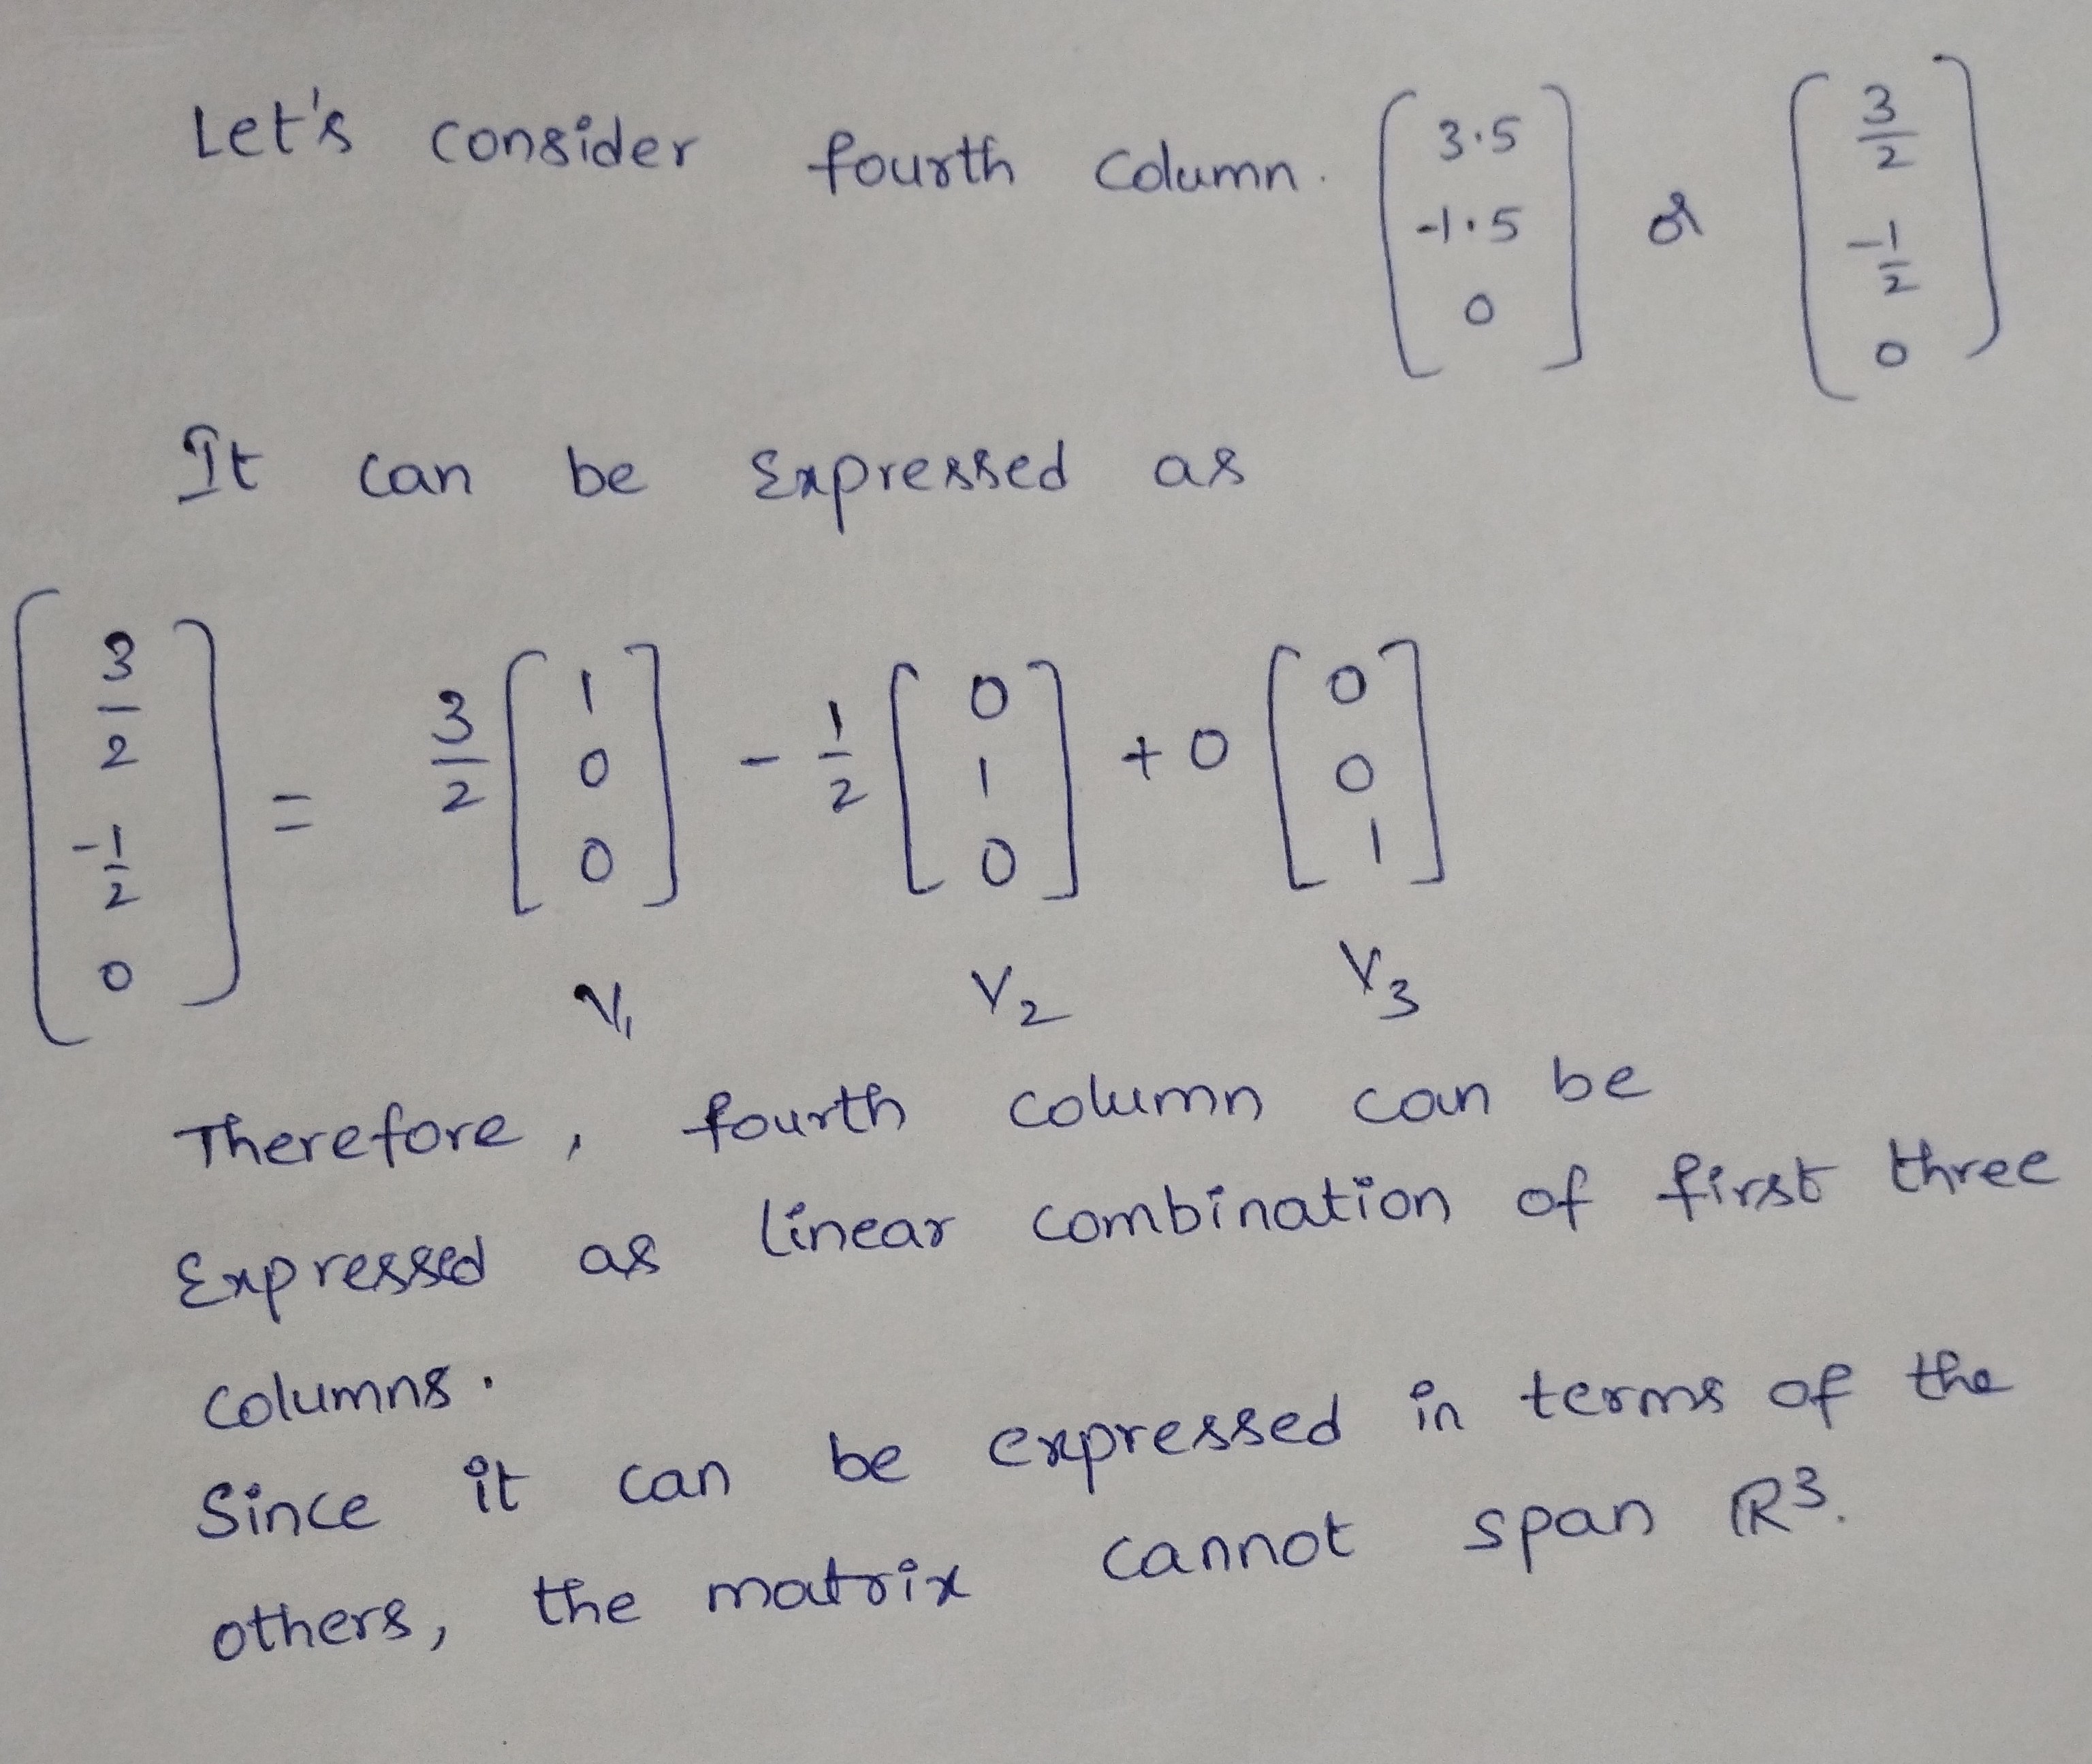 Let's consider fourth column. [3.5 -1.5 0] or [3/2 -1/2 0]
It can be Expressed as
[3/2 -1/2 0] = 3/2 [1 0 0] - 1/2 [0 1 0] + 0 [0 0 1]
V1 V2 V3
Therefore, fourth column can be
Expressed as linear combination of first three
columns.
Since it can be expressed in terms of the
others, the matrix cannot span ℝ³.